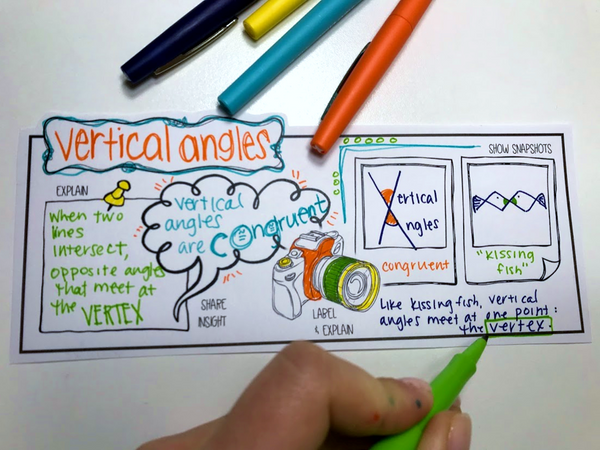 vertical angles
EXPLAIN
When two
lines
intersect,
opposite angles
that meet at
the VERTEX
vertical
angles
are congruent
SHARE
INSIGHT
LABEL
& EXPLAIN
SHOW SNAPSHOTS
vertical
Angles
congruent
"kissing
fish"
Like kissing fish, vertical
angles meet at one point:
the vertex.